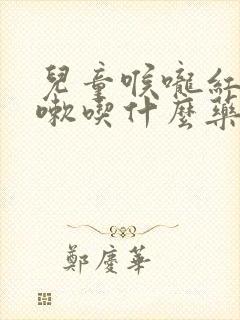 兒童喉嚨紅
嗽喫什麼藥
鄭慶華